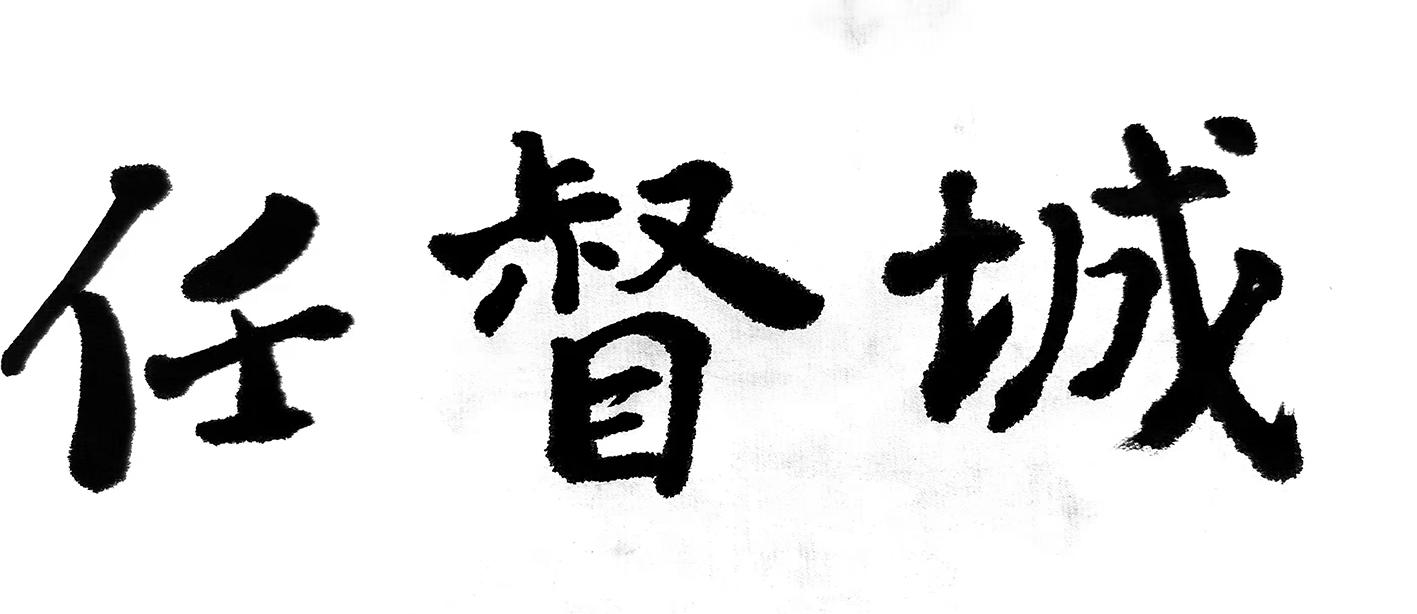 任督城